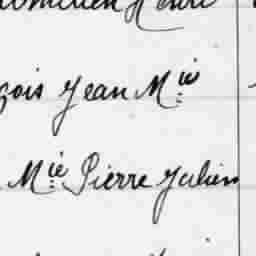 Henri
çois Jean Mie
Mie Pierre Julien